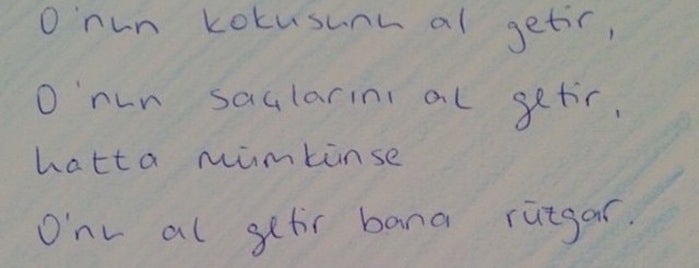 O'nun kokusunu al getir,
O'nun saçlarını al getir,
hatta mümkünse
O'nu al getir bana rüzgar.